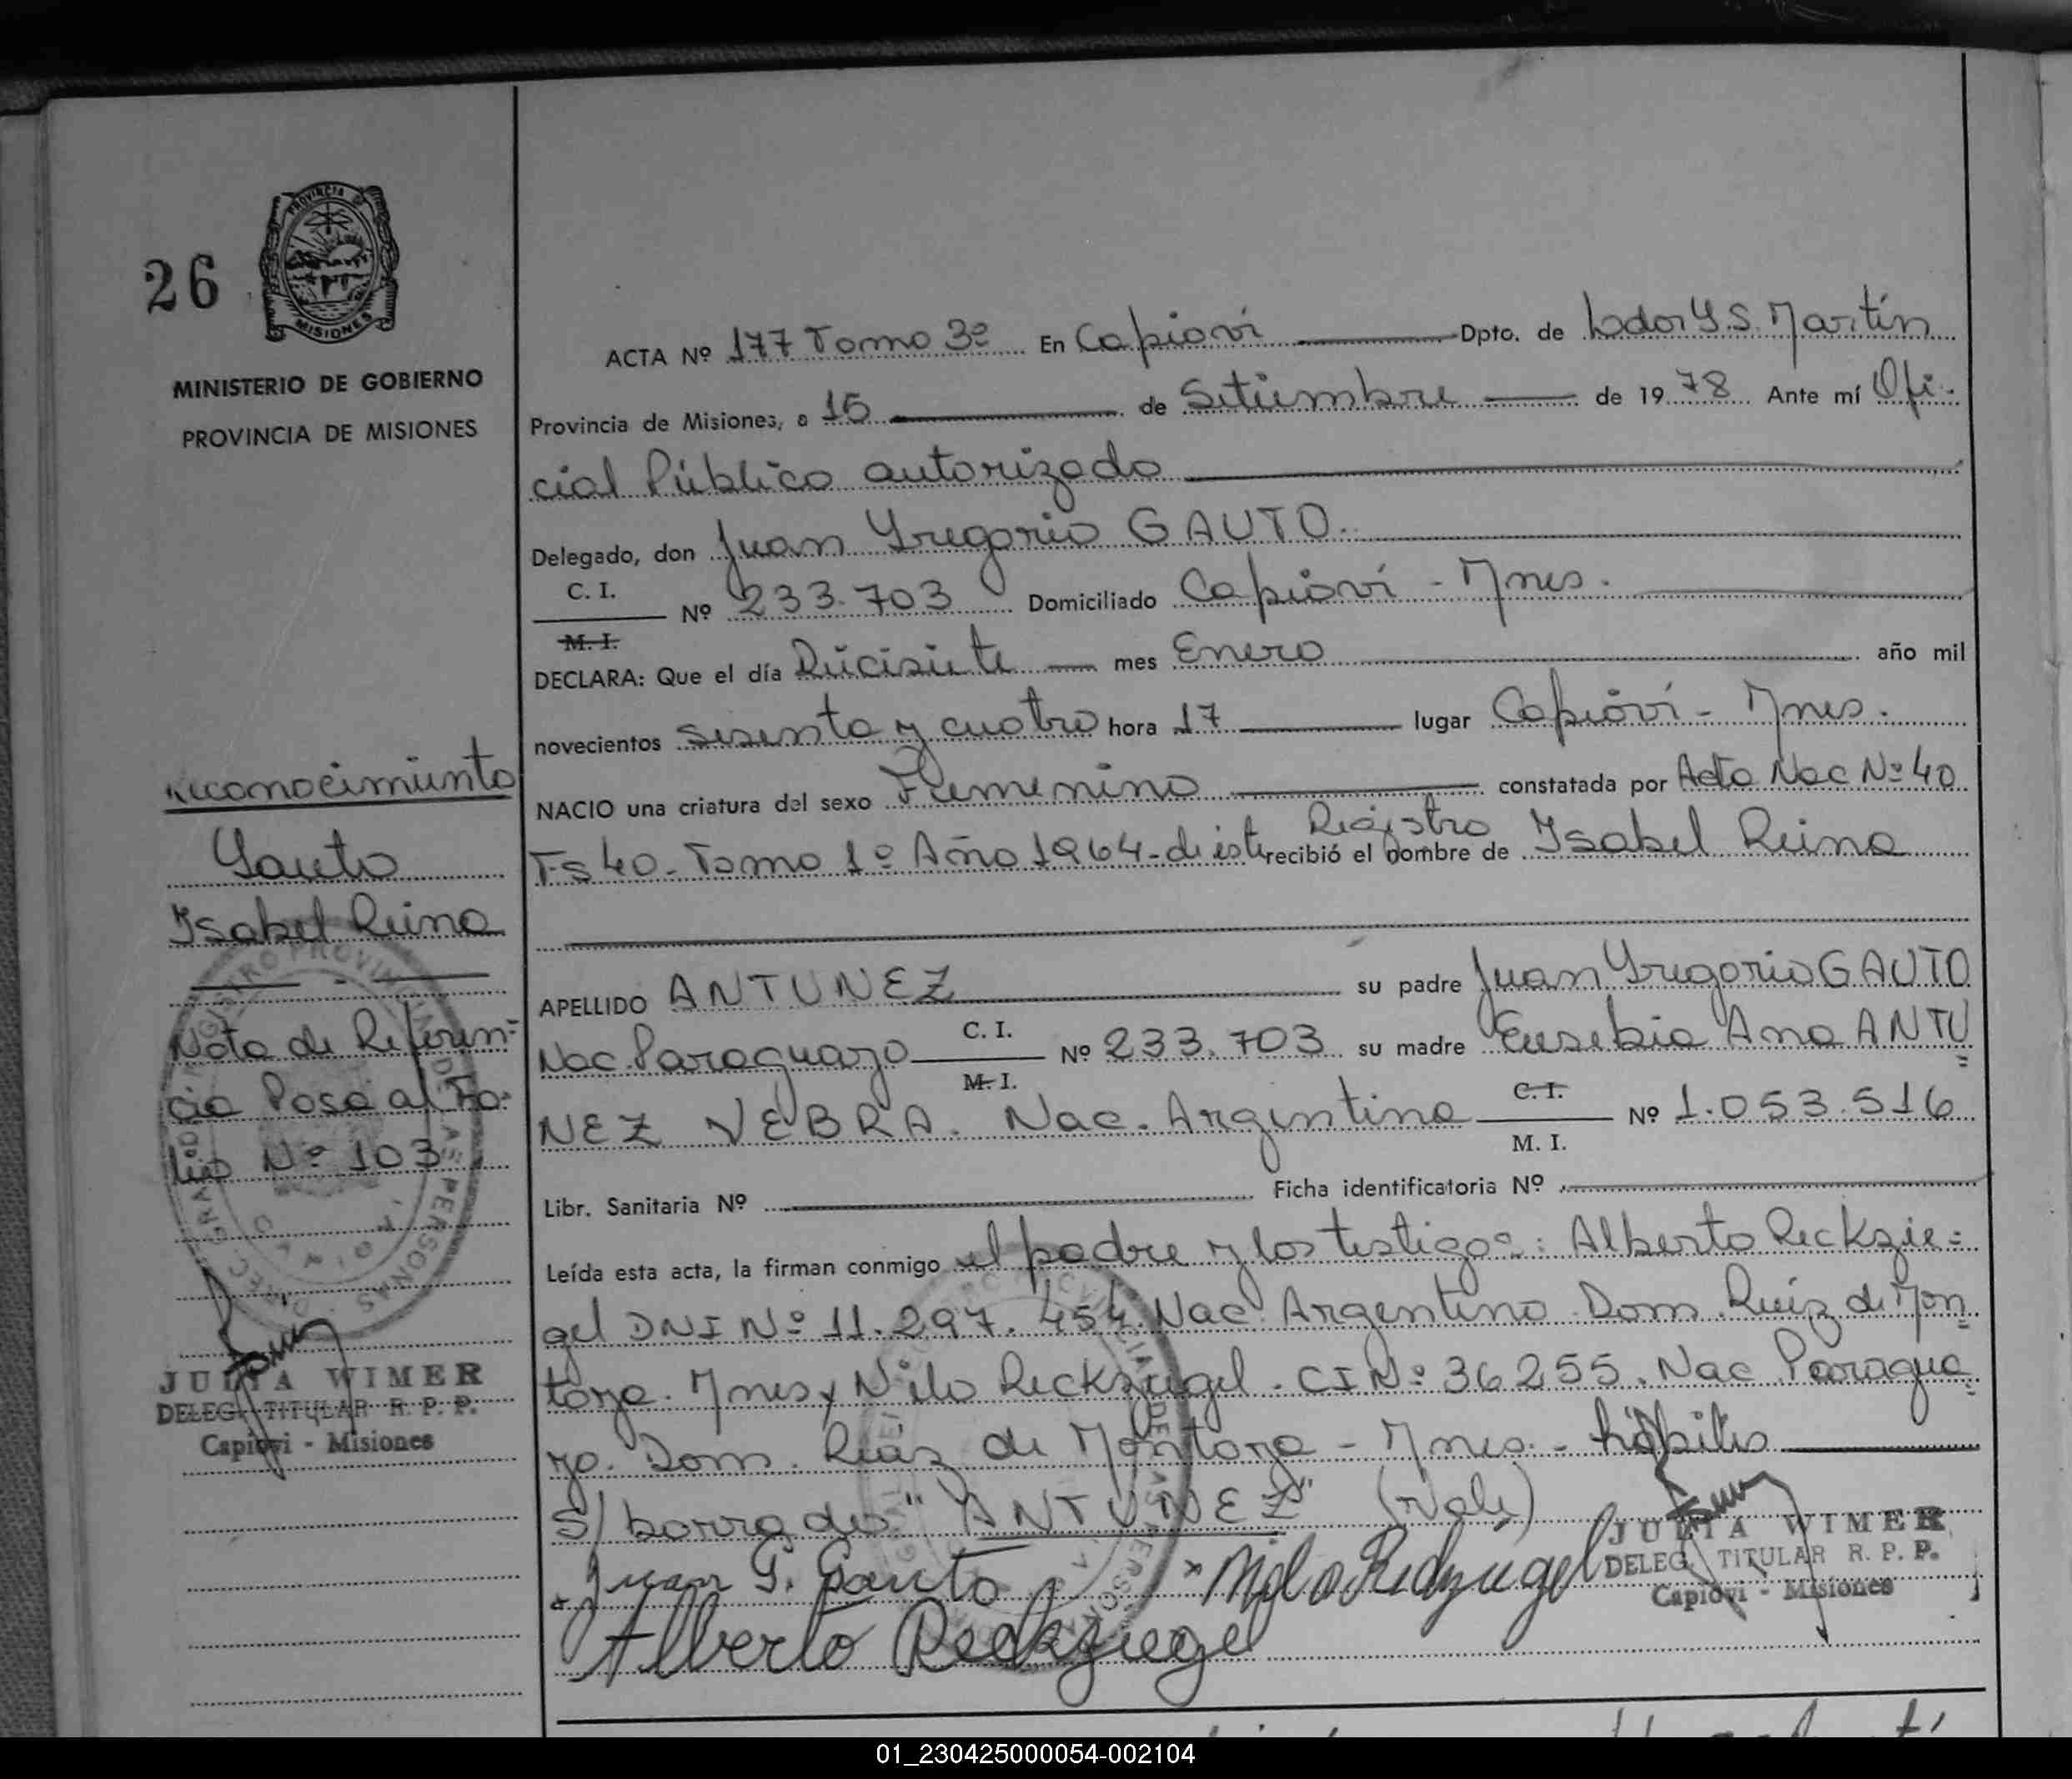 26
PROVINCIA DE
MISIONES
MINISTERIO DE GOBIERNO
PROVINCIA DE MISIONES
Reconocimiento
Gauto
Isabel Reina
Nota de Referen=
cia Pasa al Fo=
lio Nº 103
JULIA WIMER
DELEG. TITULAR R. P. P.
Capioví - Misiones
ACTA Nº 177 Tomo 3º En Capioví Dpto. de Ldor G. S. Martín
Provincia de Misiones, a 15 de Setiembre de 1978 Ante mí Ofi-
cial Público autorizado
Delegado, don Juan Gregorio GAUTO.
C. I.
M. I. Nº 233.703 Domiciliado Capioví - Mnes.
DECLARA: Que el día Diecisiete mes Enero año mil
novecientos sesenta y cuatro hora 17 lugar Capioví - Mnes.
NACIO una criatura del sexo Femenino constatada por Acta Nac Nº 40
Fs 40 - Tomo 1º Año 1964 - de este Registro recibió el nombre de Isabel Reina
APELLIDO ANTUNEZ su padre Juan Gregorio GAUTO
Nac. Paraguayo C. I. M. I. Nº 233.703 su madre Eusebia Ana ANTU
=
NEZ VEBRA. Nac. Argentina C. I. M. I. Nº 1.053.516
Libr. Sanitaria Nº Ficha identificatoria Nº
Leída esta acta, la firman conmigo el padre y los testigos: Alberto Reckzie=
gel DNI Nº 11.297.454. Nac. Argentino. Dom. Ruiz de Mon=
toya. Mnes y Nilo Reckziegel. CI Nº 36255. Nac Paragua=
yo. Dom. Ruiz de Montoya - Mnes. - hábiles
S/ borrado: "ANTUNEZ" (Vale)
Juan G. Gauto Nilo Reckziegel
JULIA WIMER
DELEG. TITULAR R. P. P.
Capioví - Misiones
Alberto Reckziegel
01_230425000054-002104